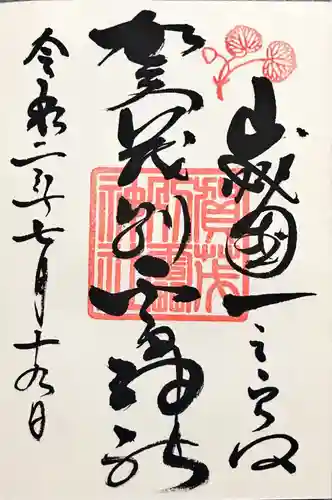 山城国一之宮
賀茂別雷神社
令和二年七月十九日
賀茂
別雷
神社